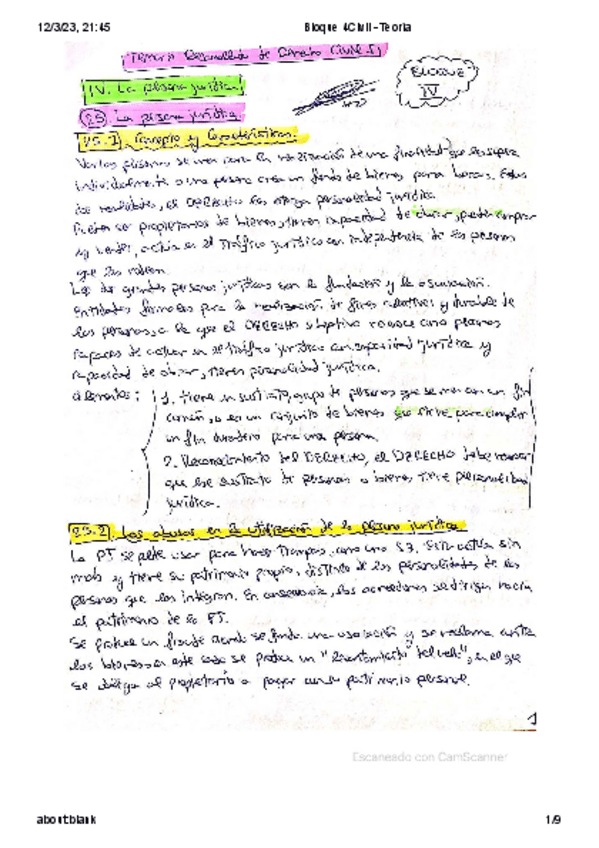 12/3/23, 21:45 Bloque 4Civil - Teoria
Temario Desarrollado de Derecho Civil I
BLOQUE
IV
IV. La persona jurídica
25. La persona jurídica
25.1 Concepto y Características.
Varias personas se unen para la realización de una finalidad que les supera
individualmente o una persona crea un fondo de bienes para hacer. Estas
dos realidades, el DERECHO les otorga personalidad jurídica.
Pueden ser propietarios de bienes, tienen capacidad de obrar, pueden comprar
y vender, actúa en el tráfico jurídico con independencia de las personas
que las rodean.
Las dos grandes personas jurídicas son la fundación y la asociación.
Entidades formadas para la realización de fines colectivos y durable de
las personas, a la que el DERECHO objetivo reconoce como
capaces de actuar en el tráfico jurídico con capacidad jurídica y
capacidad de obrar, tienen personalidad jurídica.
elementos: 1. tiene un sustrato, grupo de personas que se unen con un fin
común, o es un conjunto de bienes que sirve para cumplir
un fin duradero para una persona.
2. Reconocimiento del DERECHO, el DERECHO debe reconocer
que ese sustrato de personas o bienes tiene personalidad
jurídica.
25.2 Los abusos en la utilización de la persona jurídica
La PJ se puede usar para hacer trampas, como una S.J. Esta actúa sin
más y tiene su patrimonio propio, distinto de las personalidades de las
personas que las integran. En consecuencia, los acreedores se dirigen hacia
el patrimonio de la PJ.
Se produce un fraude cuando se funda una asociación y se reclama contra
los en este caso se produce un "levantamiento del velo", en el que
se obliga al propietario a pagar con su patrimonio personal.
1
Escaneado con CamScanner
about:blank 1/9